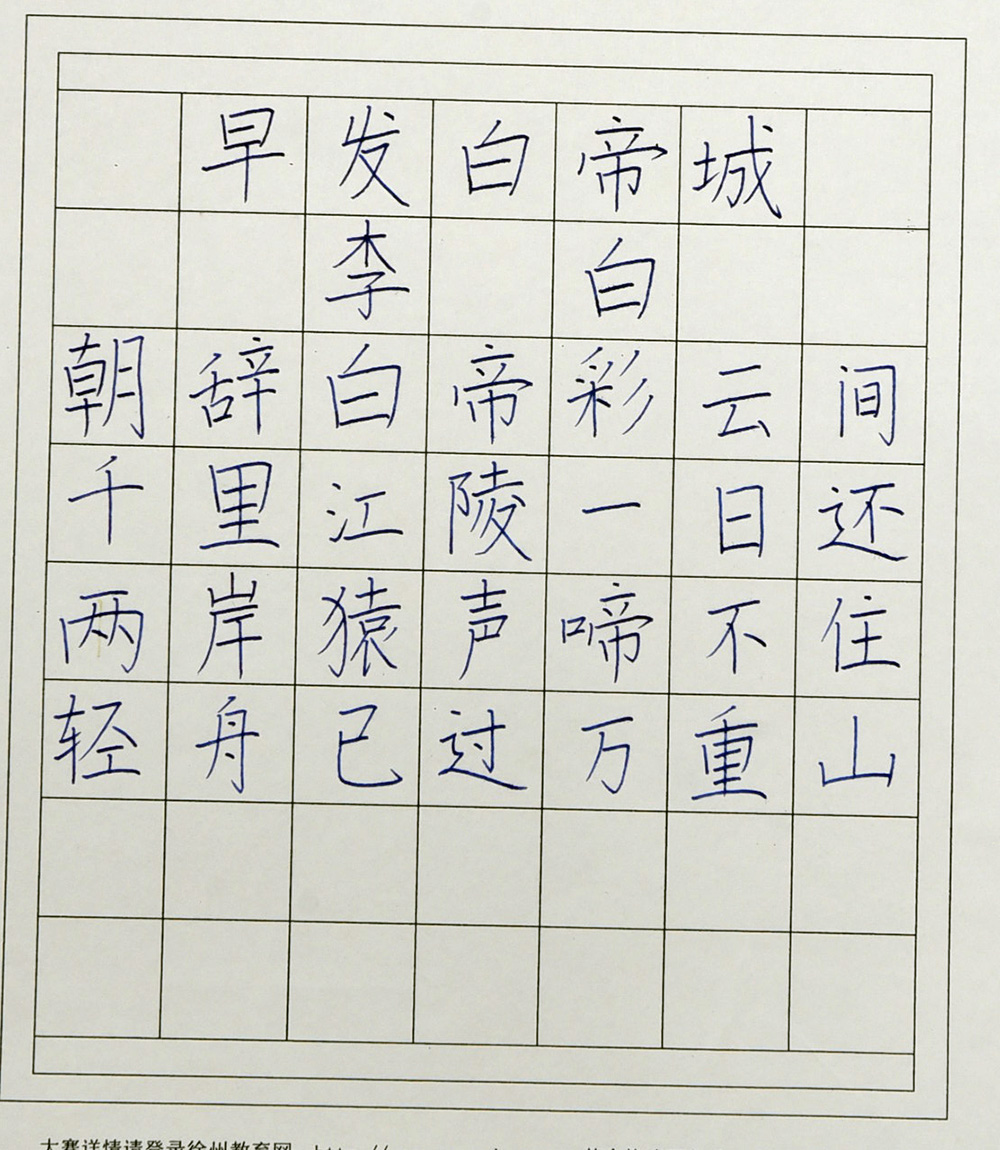 早发白帝城
李白
朝辞白帝彩云间
千里江陵一日还
两岸猿声啼不住
轻舟已过万重山
大赛详情请登录徐州教育网